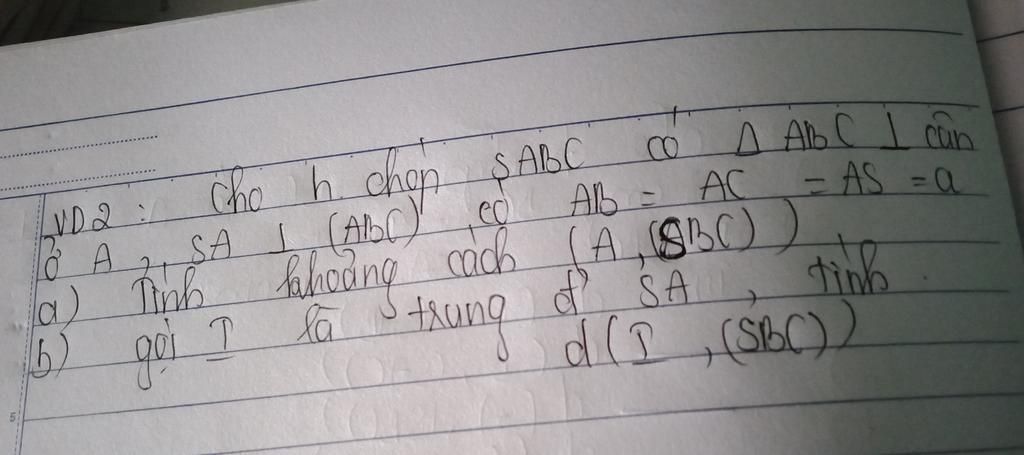 VD2: Cho h. chóp SABC có Δ ABC ⊥ cân
ở A, SA ⊥ (ABC) có AB = AC = AS = a
a) Tính khoảng cách (A, (SBC))
b) gọi I là trung đ' SA, tính
d(I, (SBC))
5